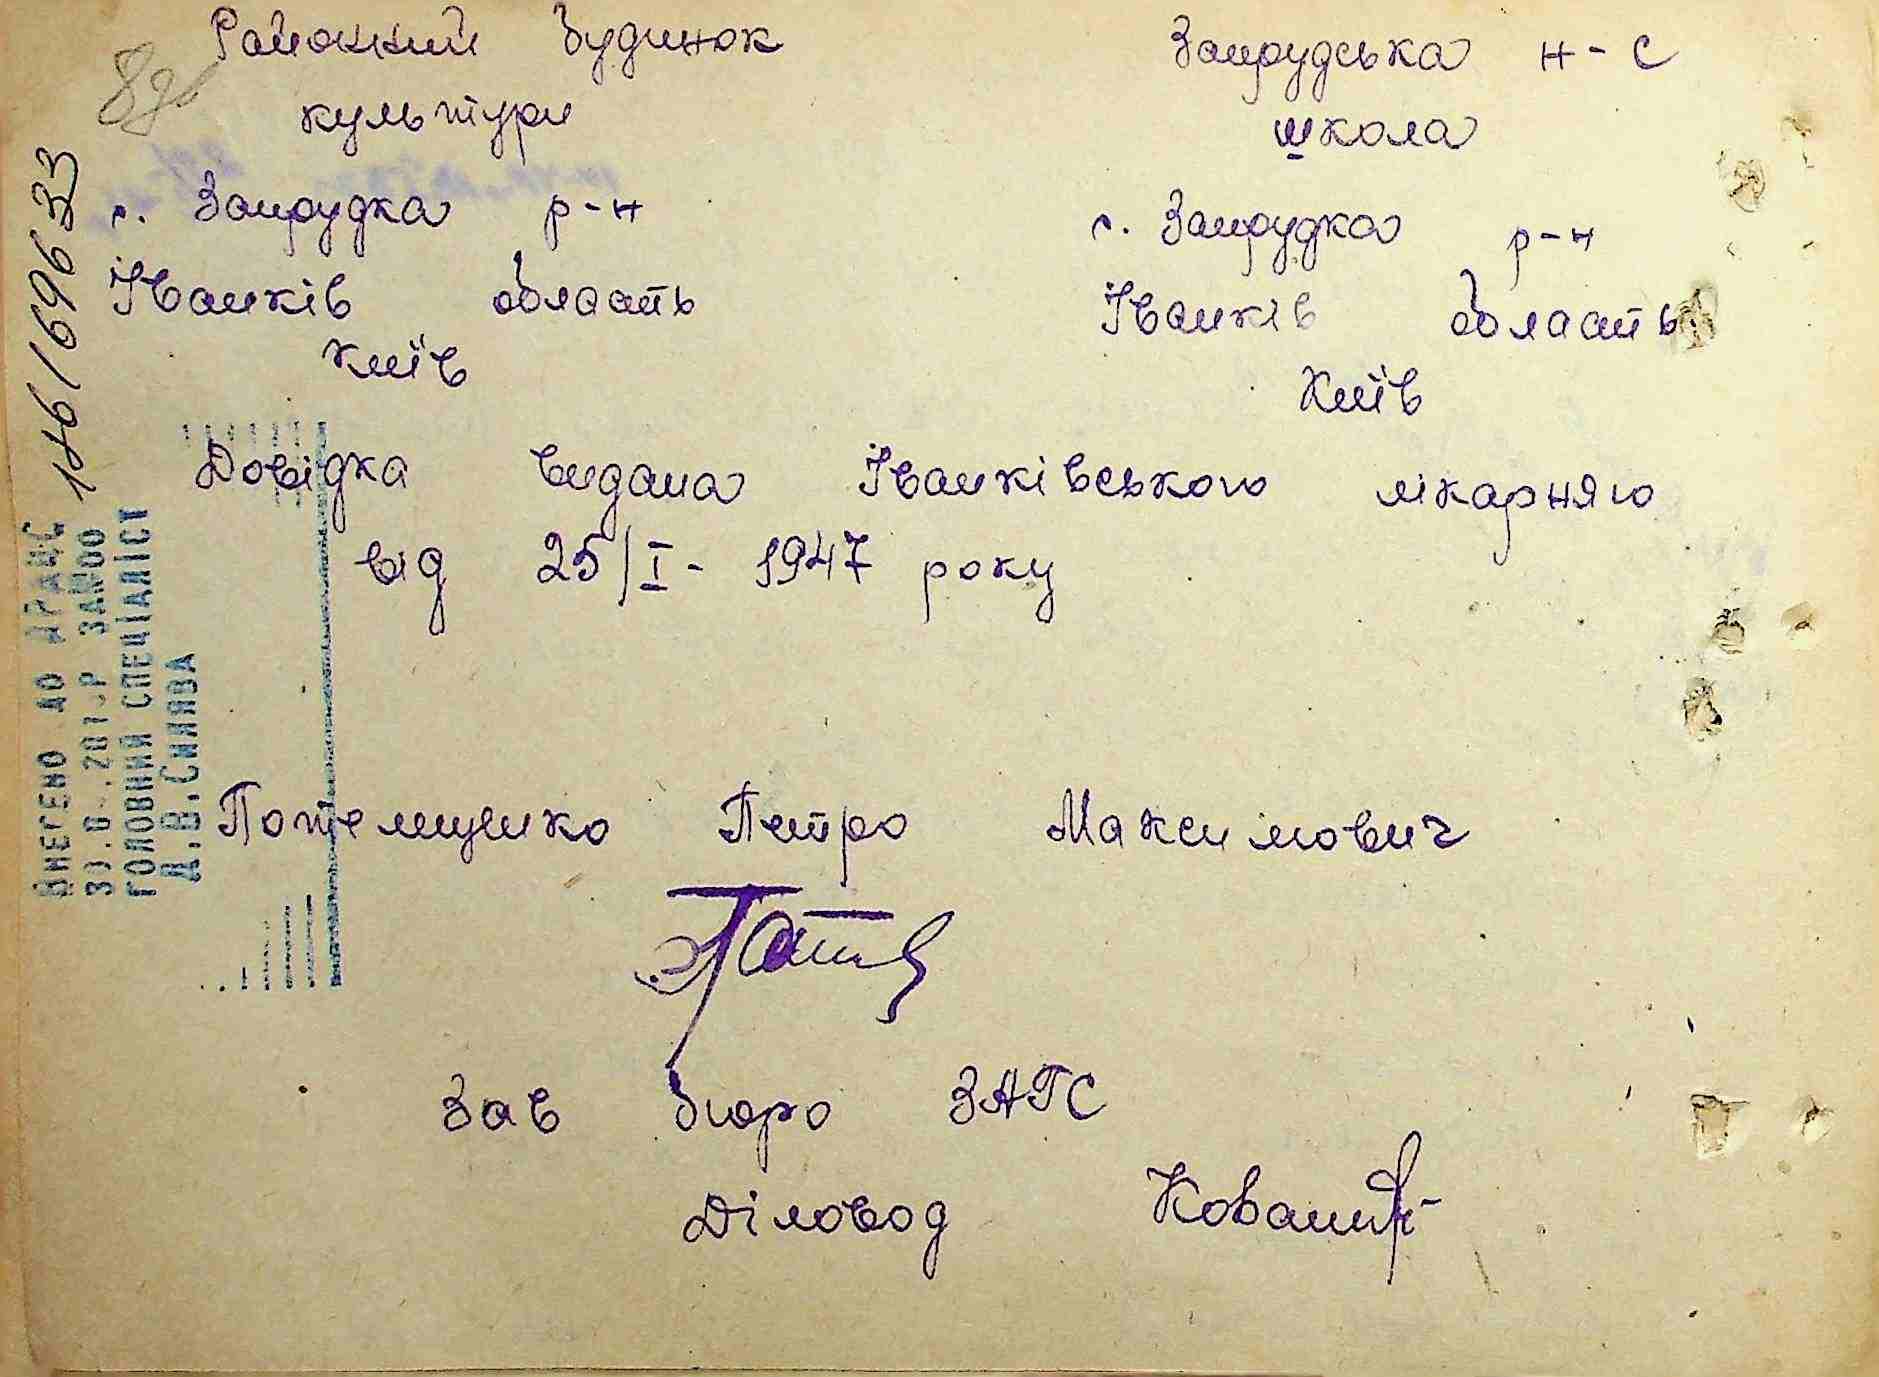 Районний будинок
культури
с. Запрудка р-н
Іванків область
Київ
Запрудська н-с
школа
с. Запрудка р-н
Іванків область
Київ
Довідка видана Іванківського лікарнею
від 25/I - 1947 року
Потемценко Петро Максимович
Зав бюро ЗАГС
Діловод
ВНЕСЕНО ДО ДРАЦС
ГОЛОВНИЙ СПЕЦІАЛІСТ
Д.В.Синява